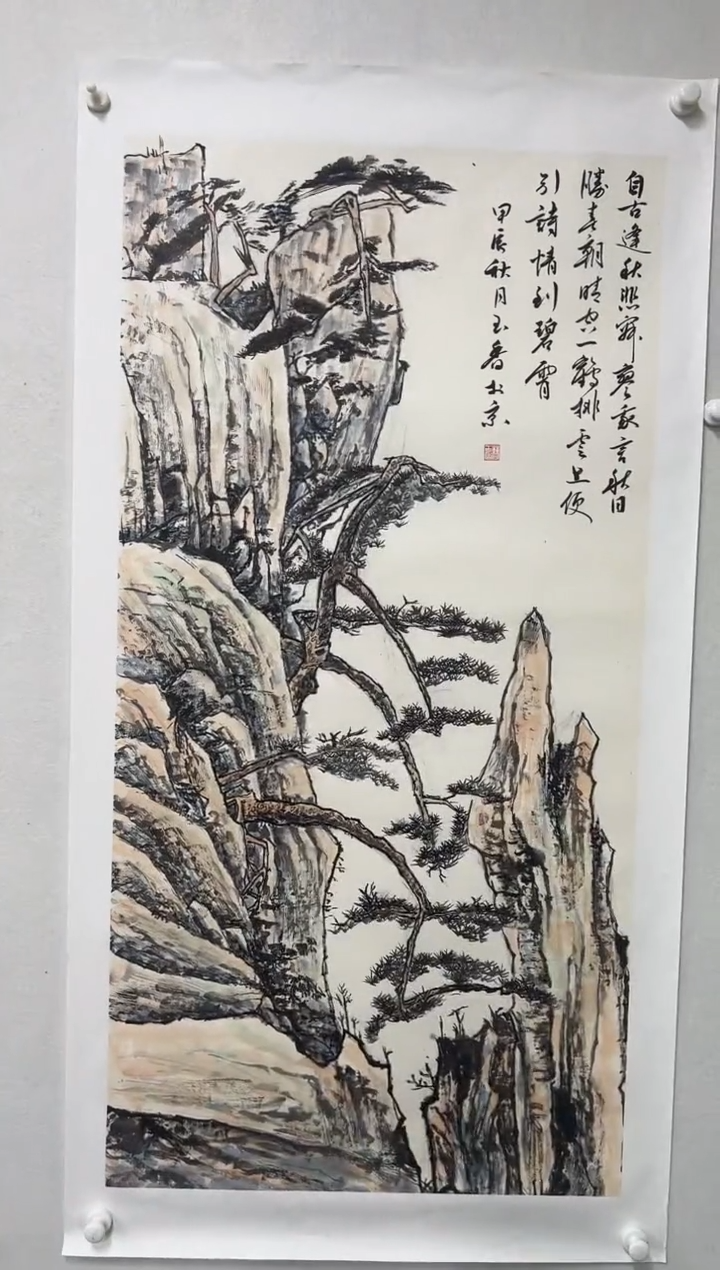 自古逢秋悲寂寥我言秋日
勝春朝晴空一鶴排雲上便
引詩情到碧霄
甲辰秋月玉香於京